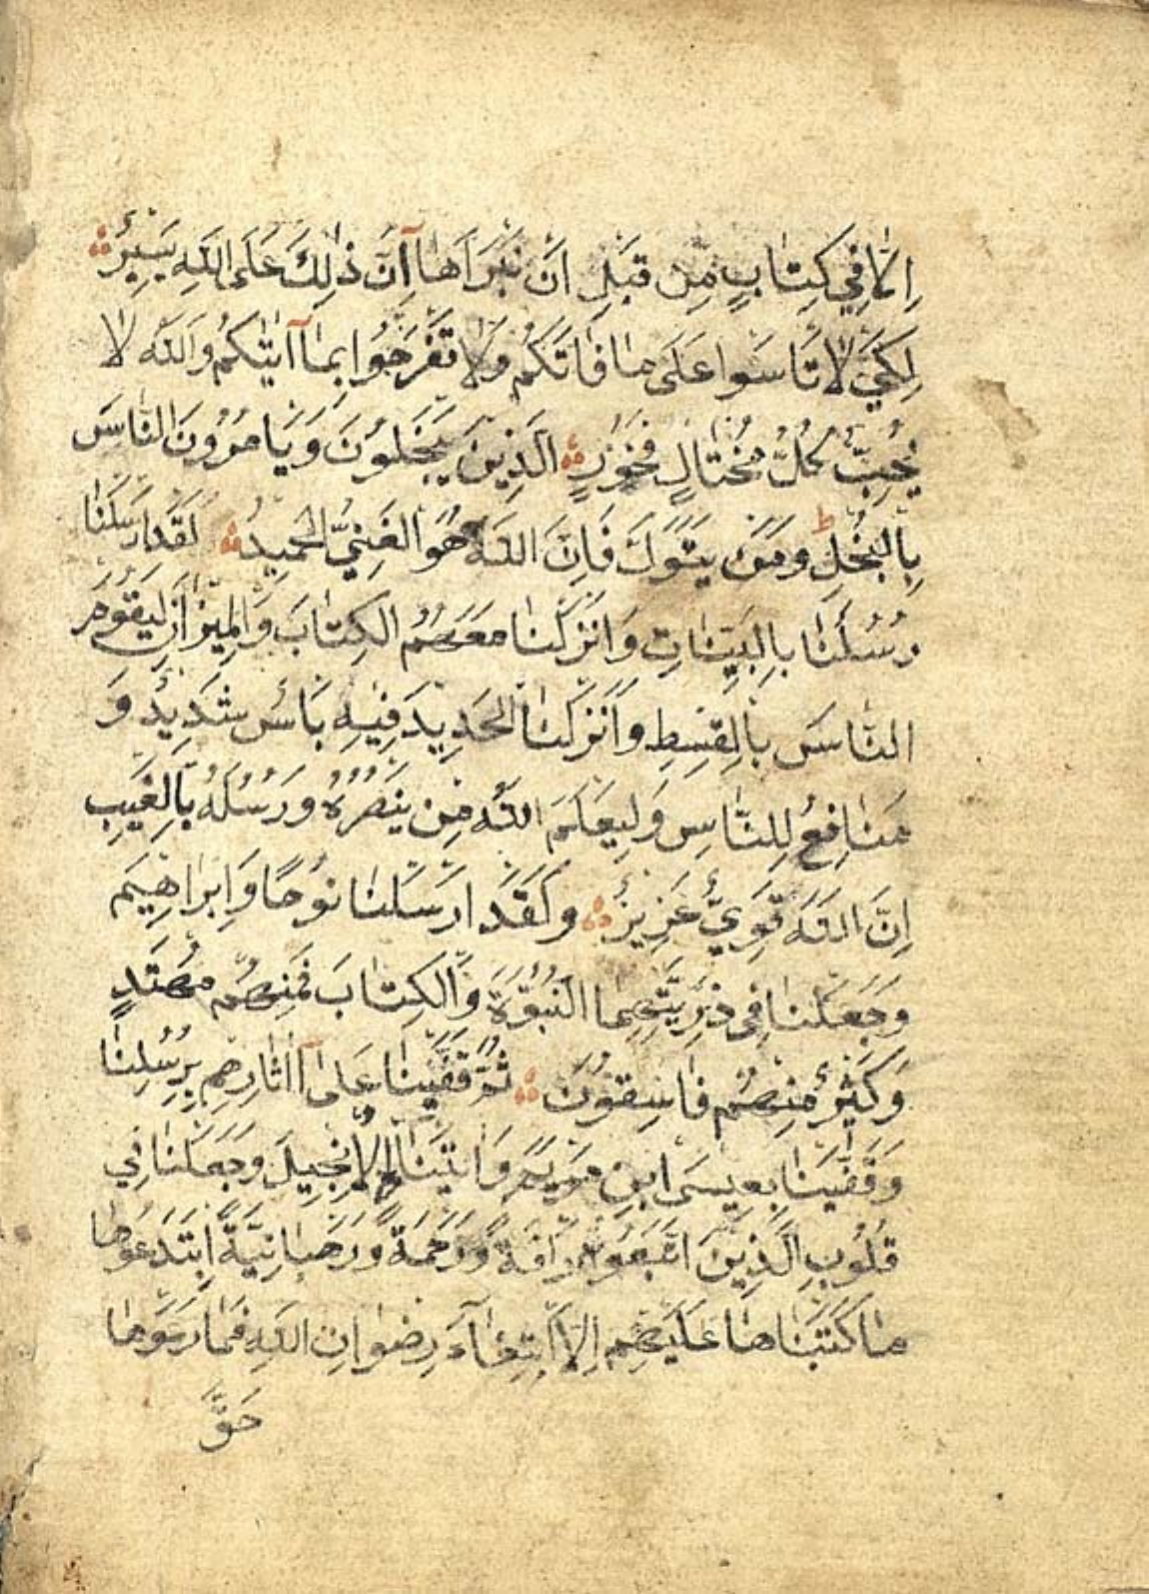 اِلَّا فِي كِتَابٍ مِن قَبْلِ اَنْ نَبْرَأَهَا آِنَّ ذٰلِكَ عَلَى اللهِ يَسِيرٌ
لِكَيْ لَا تَأسَوا عَلَى مَا فَاتَكُمْ وَلَا تَفْرَحُوا بِمَا آتٰيكُمْ وَاللهُ لَا
يُحِبُّ كُلَّ مُخْتَالٍ فَخُورٍ الَّذِينَ يَبْخَلُونَ وَيَأمُرُونَ النَّاسَ
بِالبُخْلِ ط وَمَنْ يَتَوَلَّ فَاِنَّ اللهَ هُوَ الغَنِيُّ الحَمِيدُ لَقَدْ اَرْسَلْنَا
رُسُلَنَا بِالبَيِّنَاتِ وَاَنْزَلْنَا مَعَهُمُ الكِتَابَ وَالمِيزَانَ لِيَقُومَ
النَّاسَ بِالقِسْطِ وَاَنْزَلْنَا الحَدِيدَ فِيهِ بَأسٌ شَدِيدٌ وَ
مَنَافِعُ لِلنَّاسِ وَلِيَعْلَمَ اللهُ مَن يَنْصُرُهُ وَرُسُلَهُ بِالغَيْبِ
اِنَّ اللهَ قَوِيٌّ عَزِيزٌ وَلَقَدْ اَرْسَلْنَا نُوحًا وَاِبْرَاهِيمَ
وَجَعَلْنَا فِي ذُرِّيَّتِهِمَا النُّبُوَّةَ وَالكِتَابَ فَمِنْهُمْ مُهْتَدٍ
وَكَثِيرٌ مِنْهُمْ فَاسِقُونَ ثُمَّ قَفَّيْنَا عَلَى آاثَارِهِم بِرُسُلِنَا
وَقَفَّيْنَا بِعِيسَى ابْنِ مَرْيَمَ وَاتَيْنَاهُ الاِنْجِيلَ وَجَعَلْنَا فِي
قُلُوبِ الَّذِينَ اتَّبَعُوهُ رَافَةً وَرَحْمَةً وَرَهْبَانِيَّةً ابْتَدَعُوهَا
مَا كَتَبْنَاهَا عَلَيْهِم اِلَّا ابْتِغَآءَ رِضْوَانِ اللهِ فَمَا رَعَوْهَا
حَقَّ